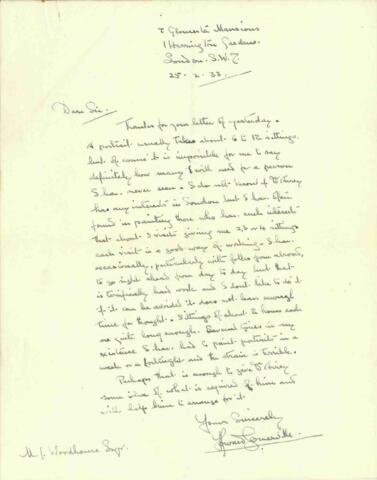 2 Gloucester Mansions
1 Harrington Gardens.
London. S.W.7.
25. 2. 33.
Dear Sir.
Thanks for your letter of yesterday.
A portrait usually takes about 6 to 12 sittings.
but of course it is impossible for me to say
definitely how many I will need for a person
I have never seen. I do not know if
has any interests in London but I have often
found in painting those who has such interests
that about 3 visits giving me 2, 3 or 4 sittings
each visit is a good way of working. I have
occasionally, particularly with folks from abroad,
to go right ahead from day to day but that
is terrifically hard work and I don't like to do it
if it can be avoided it does not leave enough
time for thought. Sittings of about 2 hours each
are quite long enough. Several times in my
existence I have had to paint portrait in a
week or a fortnight and the strain is terrible.
Perhaps that is enough to give
some idea of what is required of him and
will help him to arrange for it.
Yours Sincerely
Howard Somerville.
M. J. Woodhouse Esqr.